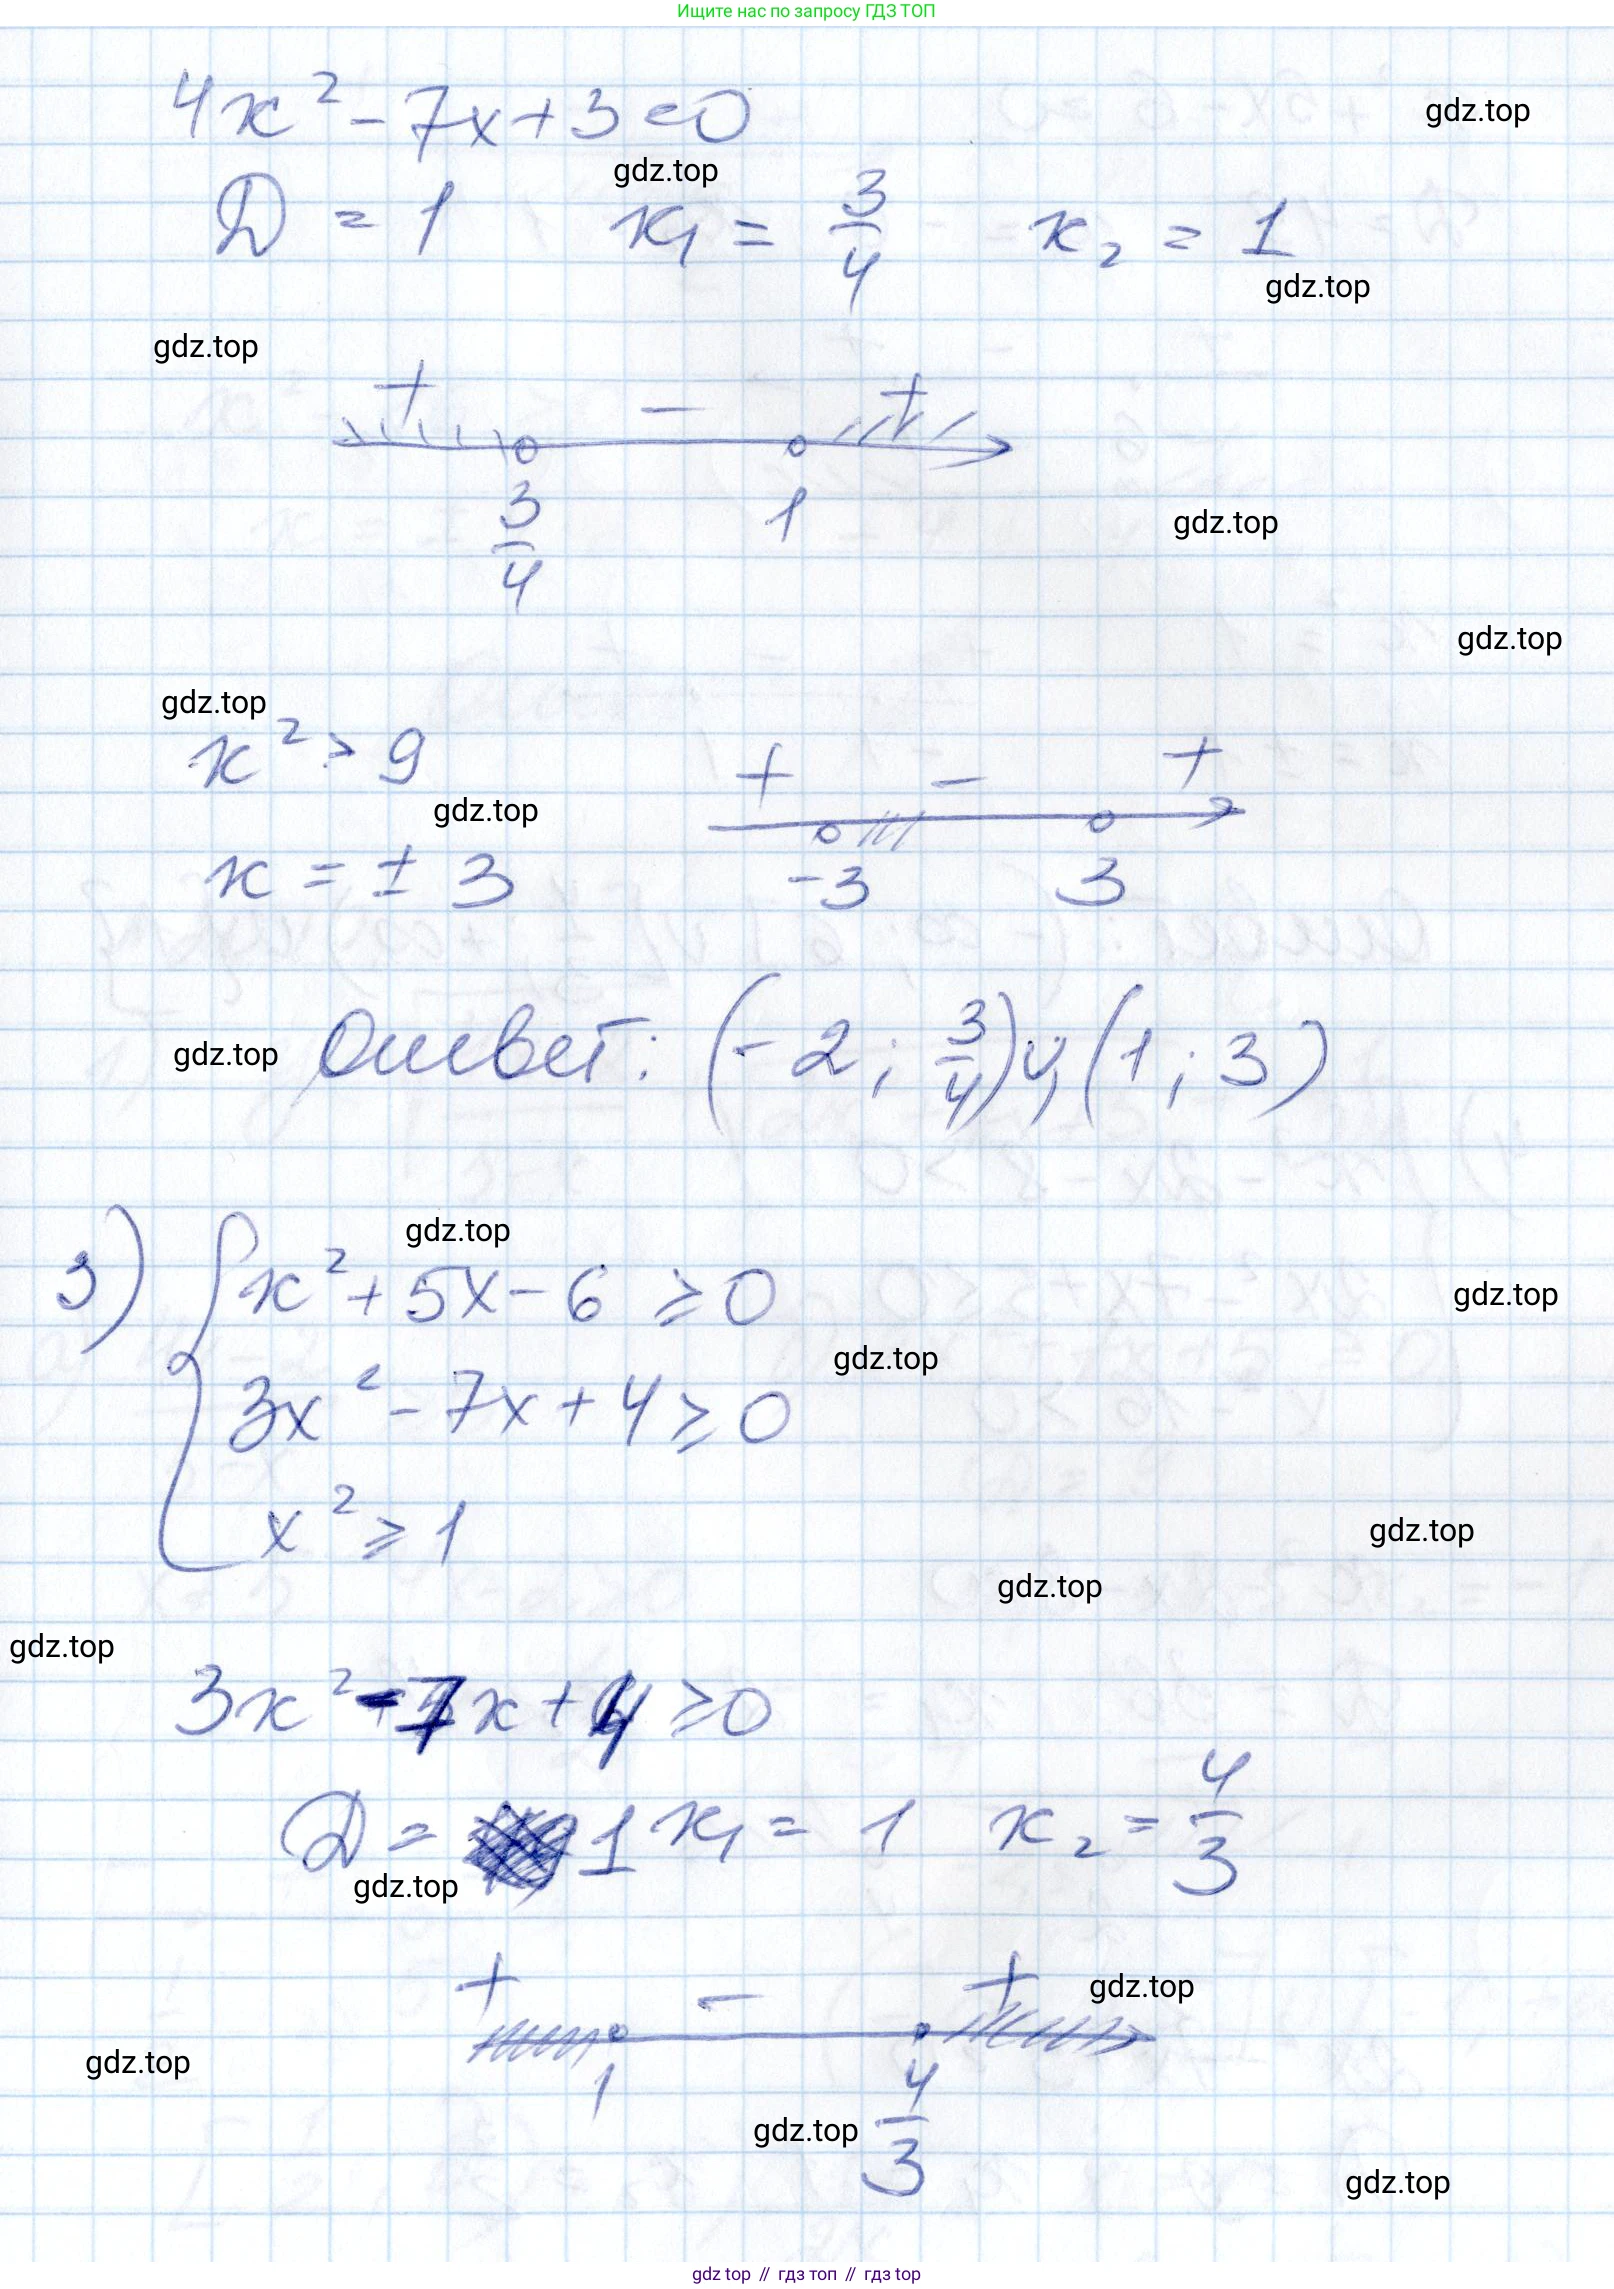 Ищите нас по запросу ГДЗ ТОП
4x² - 7x + 3 = 0
gdz.top
gdz.top
D = 1 x₁ = 3/4 x₂ = 1
gdz.top
gdz.top
+ - +
3/4 1
gdz.top
gdz.top
gdz.top
x² > 9
+ - +
gdz.top
x = ± 3
-3 3
gdz.top
Ответ: (-2; 3/4) ∪ (1; 3)
gdz.top
3) { x² + 5x - 6 ≥ 0
gdz.top
gdz.top
3x² - 7x + 4 ≥ 0
x² ≥ 1
gdz.top
gdz.top
gdz.top
3x² - 7x + 4 ≥ 0
D = 1 x₁ = 1 x₂ = 4/3
gdz.top
+ - +
gdz.top
gdz.top
1 4/3
gdz.top
gdz.top
gdz top // гдз топ // гдз top